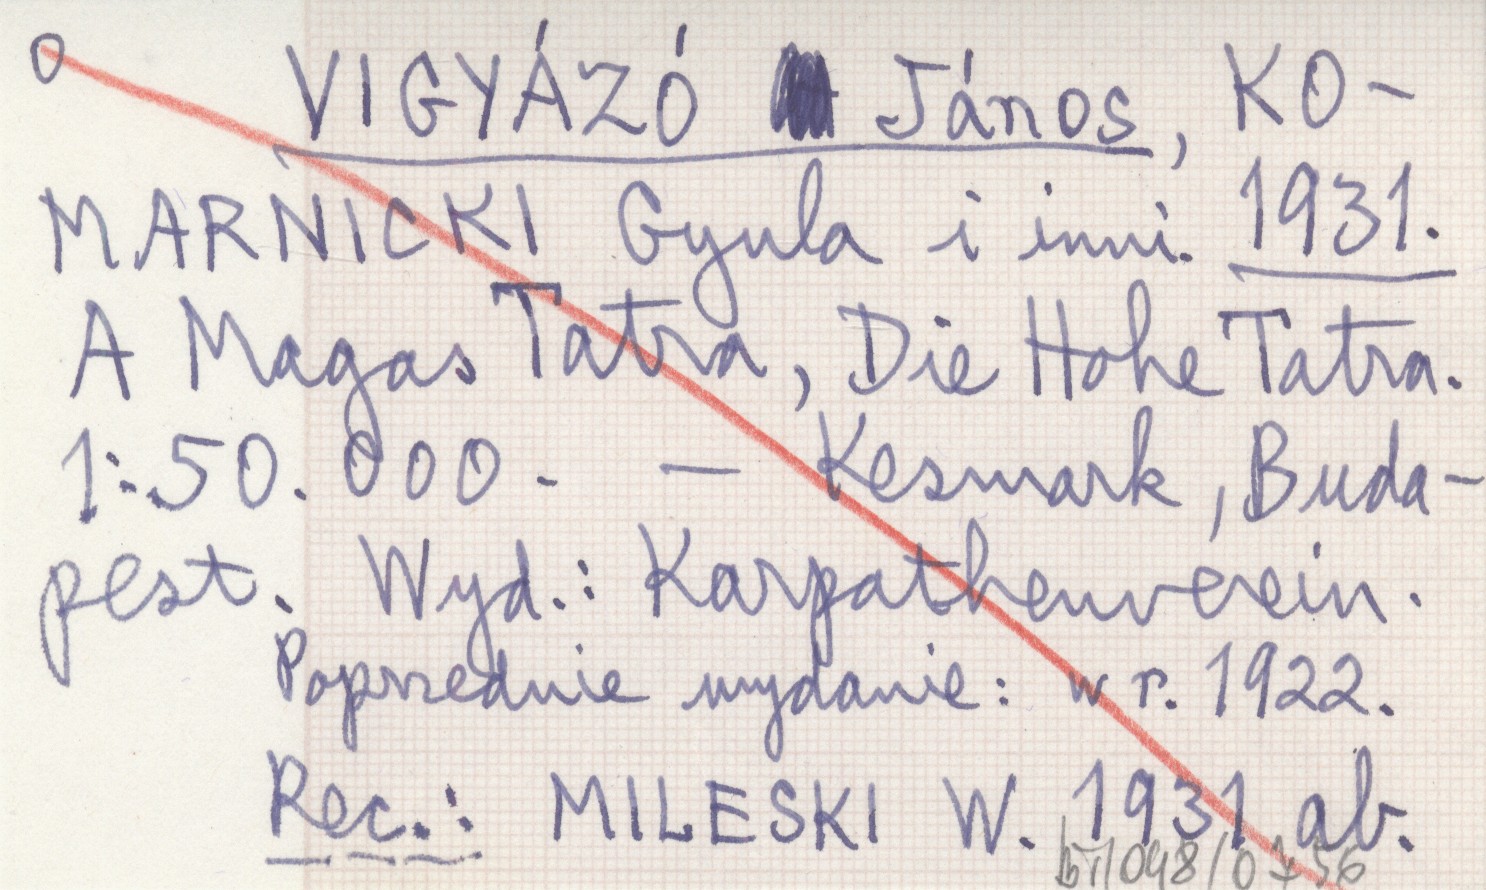 O VIGYÁZÓ János, KO-
MARNICKI Gyula i inni. 1931.
A Magas Tatra, Die Hohe Tatra.
1:50.000. — Kesmark, Buda-
pest. Wyd.: Karpathenverein.
Poprzednie wydanie: w r. 1922.
Rec.: MILESKI W. 1931 ab.